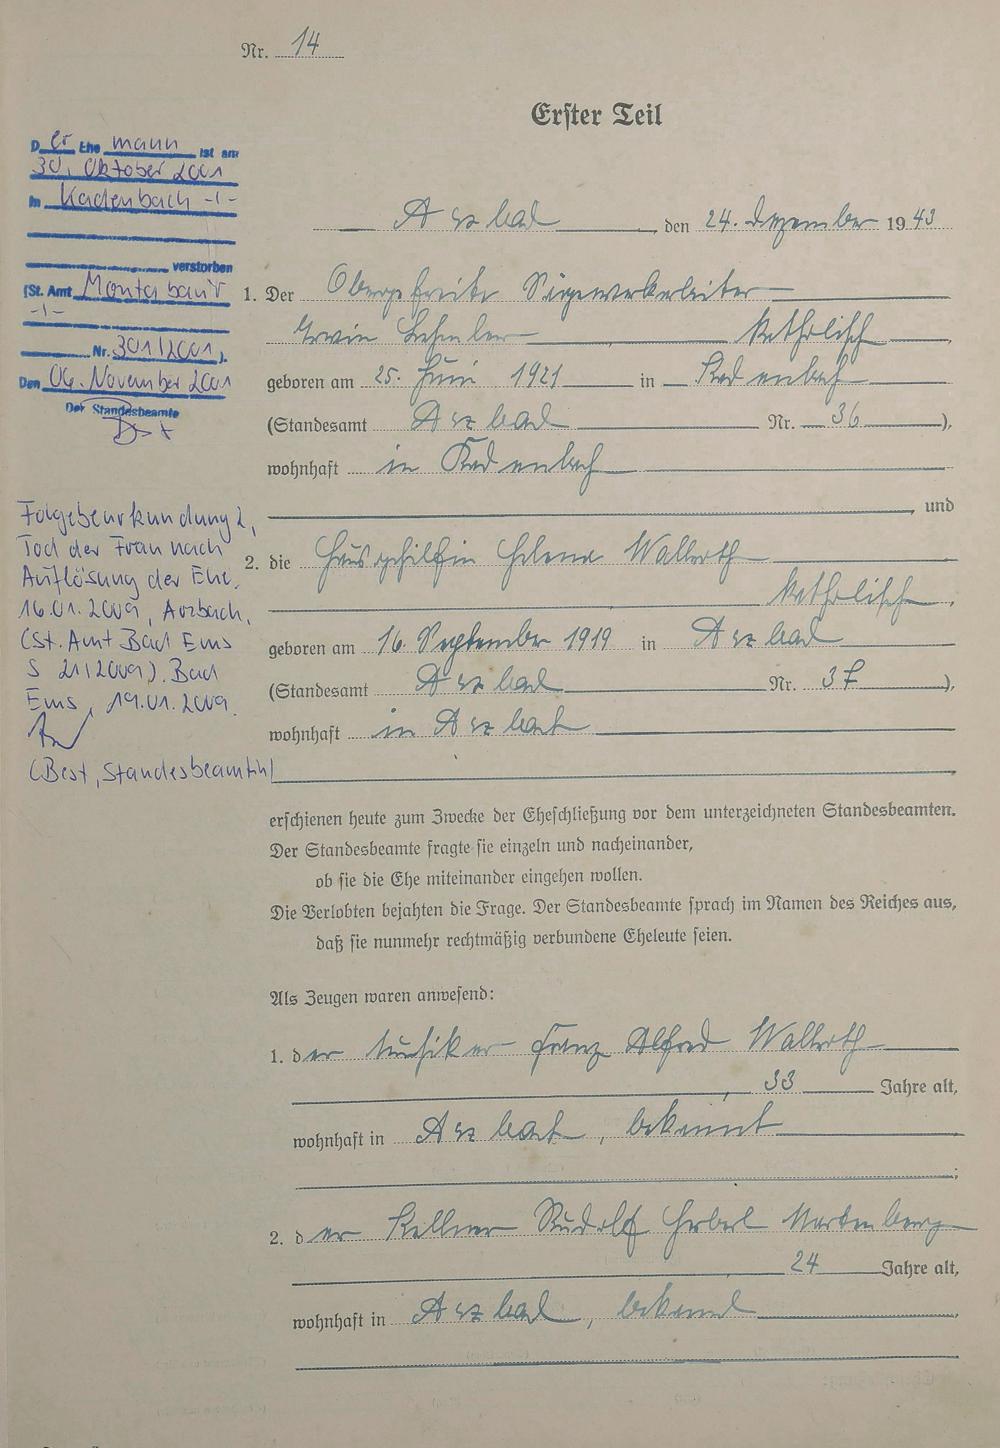 Nr. 14
Erster Teil
Der Ehe mann ist am
30. Oktober 2001
in Kadenbach -/-
verstorben
(St. Amt Montabaur
-/-
Nr. 301/2001).
Den 06. November 2001
Der Standesbeamte
Arzbach, den 24. Dezember 1943
1. Der Obergefreite
Erwin katholisch,
geboren am 25. Juni 1921 in Kadenbach
(Standesamt Arzbach Nr. 36),
wohnhaft in Kadenbach
, und
Folgebeurkundung 2,
Tod der Frau nach
Auflösung der Ehe.
16.01.2009, Arzbach,
(St. Amt Bad Ems
S 21/2009). Bad
Ems, 19.01.2009.
(Best, Standesbeamtin)
2. die Hausgehilfin Helena Wallroth
katholisch,
geboren am 16. September 1919 in Arzbach
(Standesamt Arzbach Nr. 37),
wohnhaft in Arzbach
erschienen heute zum Zwecke der Eheschließung vor dem unterzeichneten Standesbeamten.
Der Standesbeamte fragte sie einzeln und nacheinander,
ob sie die Ehe miteinander eingehen wollen.
Die Verlobten bejahten die Frage. Der Standesbeamte sprach im Namen des Reiches aus,
daß sie nunmehr rechtmäßig verbundene Eheleute seien.
Als Zeugen waren anwesend:
1. der Musiker Franz Alfred Wallroth
, 33 Jahre alt,
wohnhaft in Arzbach, bekannt
;
2. der Kellner Rudolf Herbert
24 Jahre alt,
wohnhaft in Arzbach, bekannt